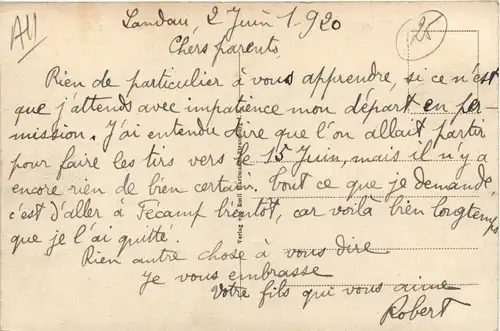 All
25
Landau, 2 Juin 1.920
Chers parents,
Rien de particulier à vous apprendre, si ce n'est
que j'attends avec impatience mon départ en per-
mission. J'ai entendu dire que l'on allait partir
pour faire les tirs vers le 15 Juin, mais il n'y a
encore rien de bien certain. Tout ce que je demande
c'est d'aller à Fécamp bientôt, car voilà bien longtemps
que je l'ai quitté.
Rien autre chose à vous dire
Je vous embrasse
Votre fils qui vous aime
Robert
Verlag von Emil